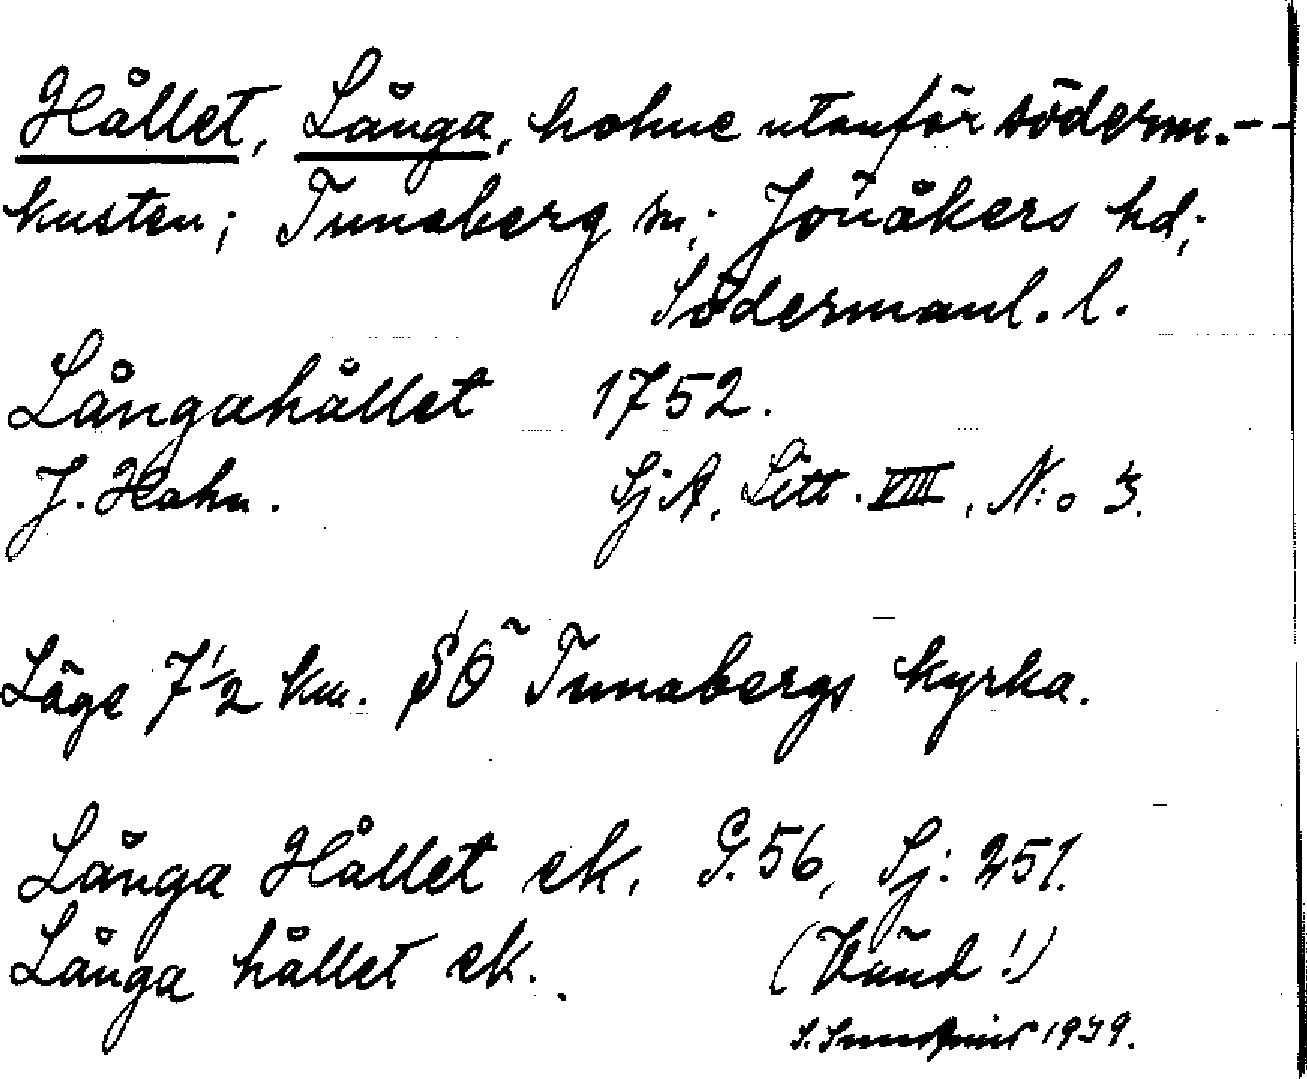 Hållet, Långa, holme utanför söderm.--
kusten; Tunaberg sn; Jönåkers hd;
Södermanl. l.
Långahållet 1752.
J. Hahn. SjA, Litt. VIII, N:o 3.
Läge 7 1/2 km. SÖ Tunabergs kyrka.
Långa Hållet ek. G. 56, Sj: 251.
Långa hållet ek. (Vänd!)
1939.